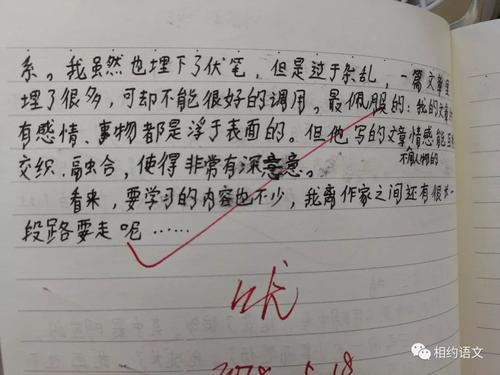 系。我虽然也埋下了伏笔，但是过于杂乱，一篇文章里
埋了很多，可却不能很好的调用。最佩服的：我的文章
有感情、事物都是浮于表面的。但他写的文章情感能
不同人物的
交织、融合，使得非常有深意。
看来，要学习的内容也不少，我离作家之间还有很长一
段路要走呢……
优
5.18
相约语文